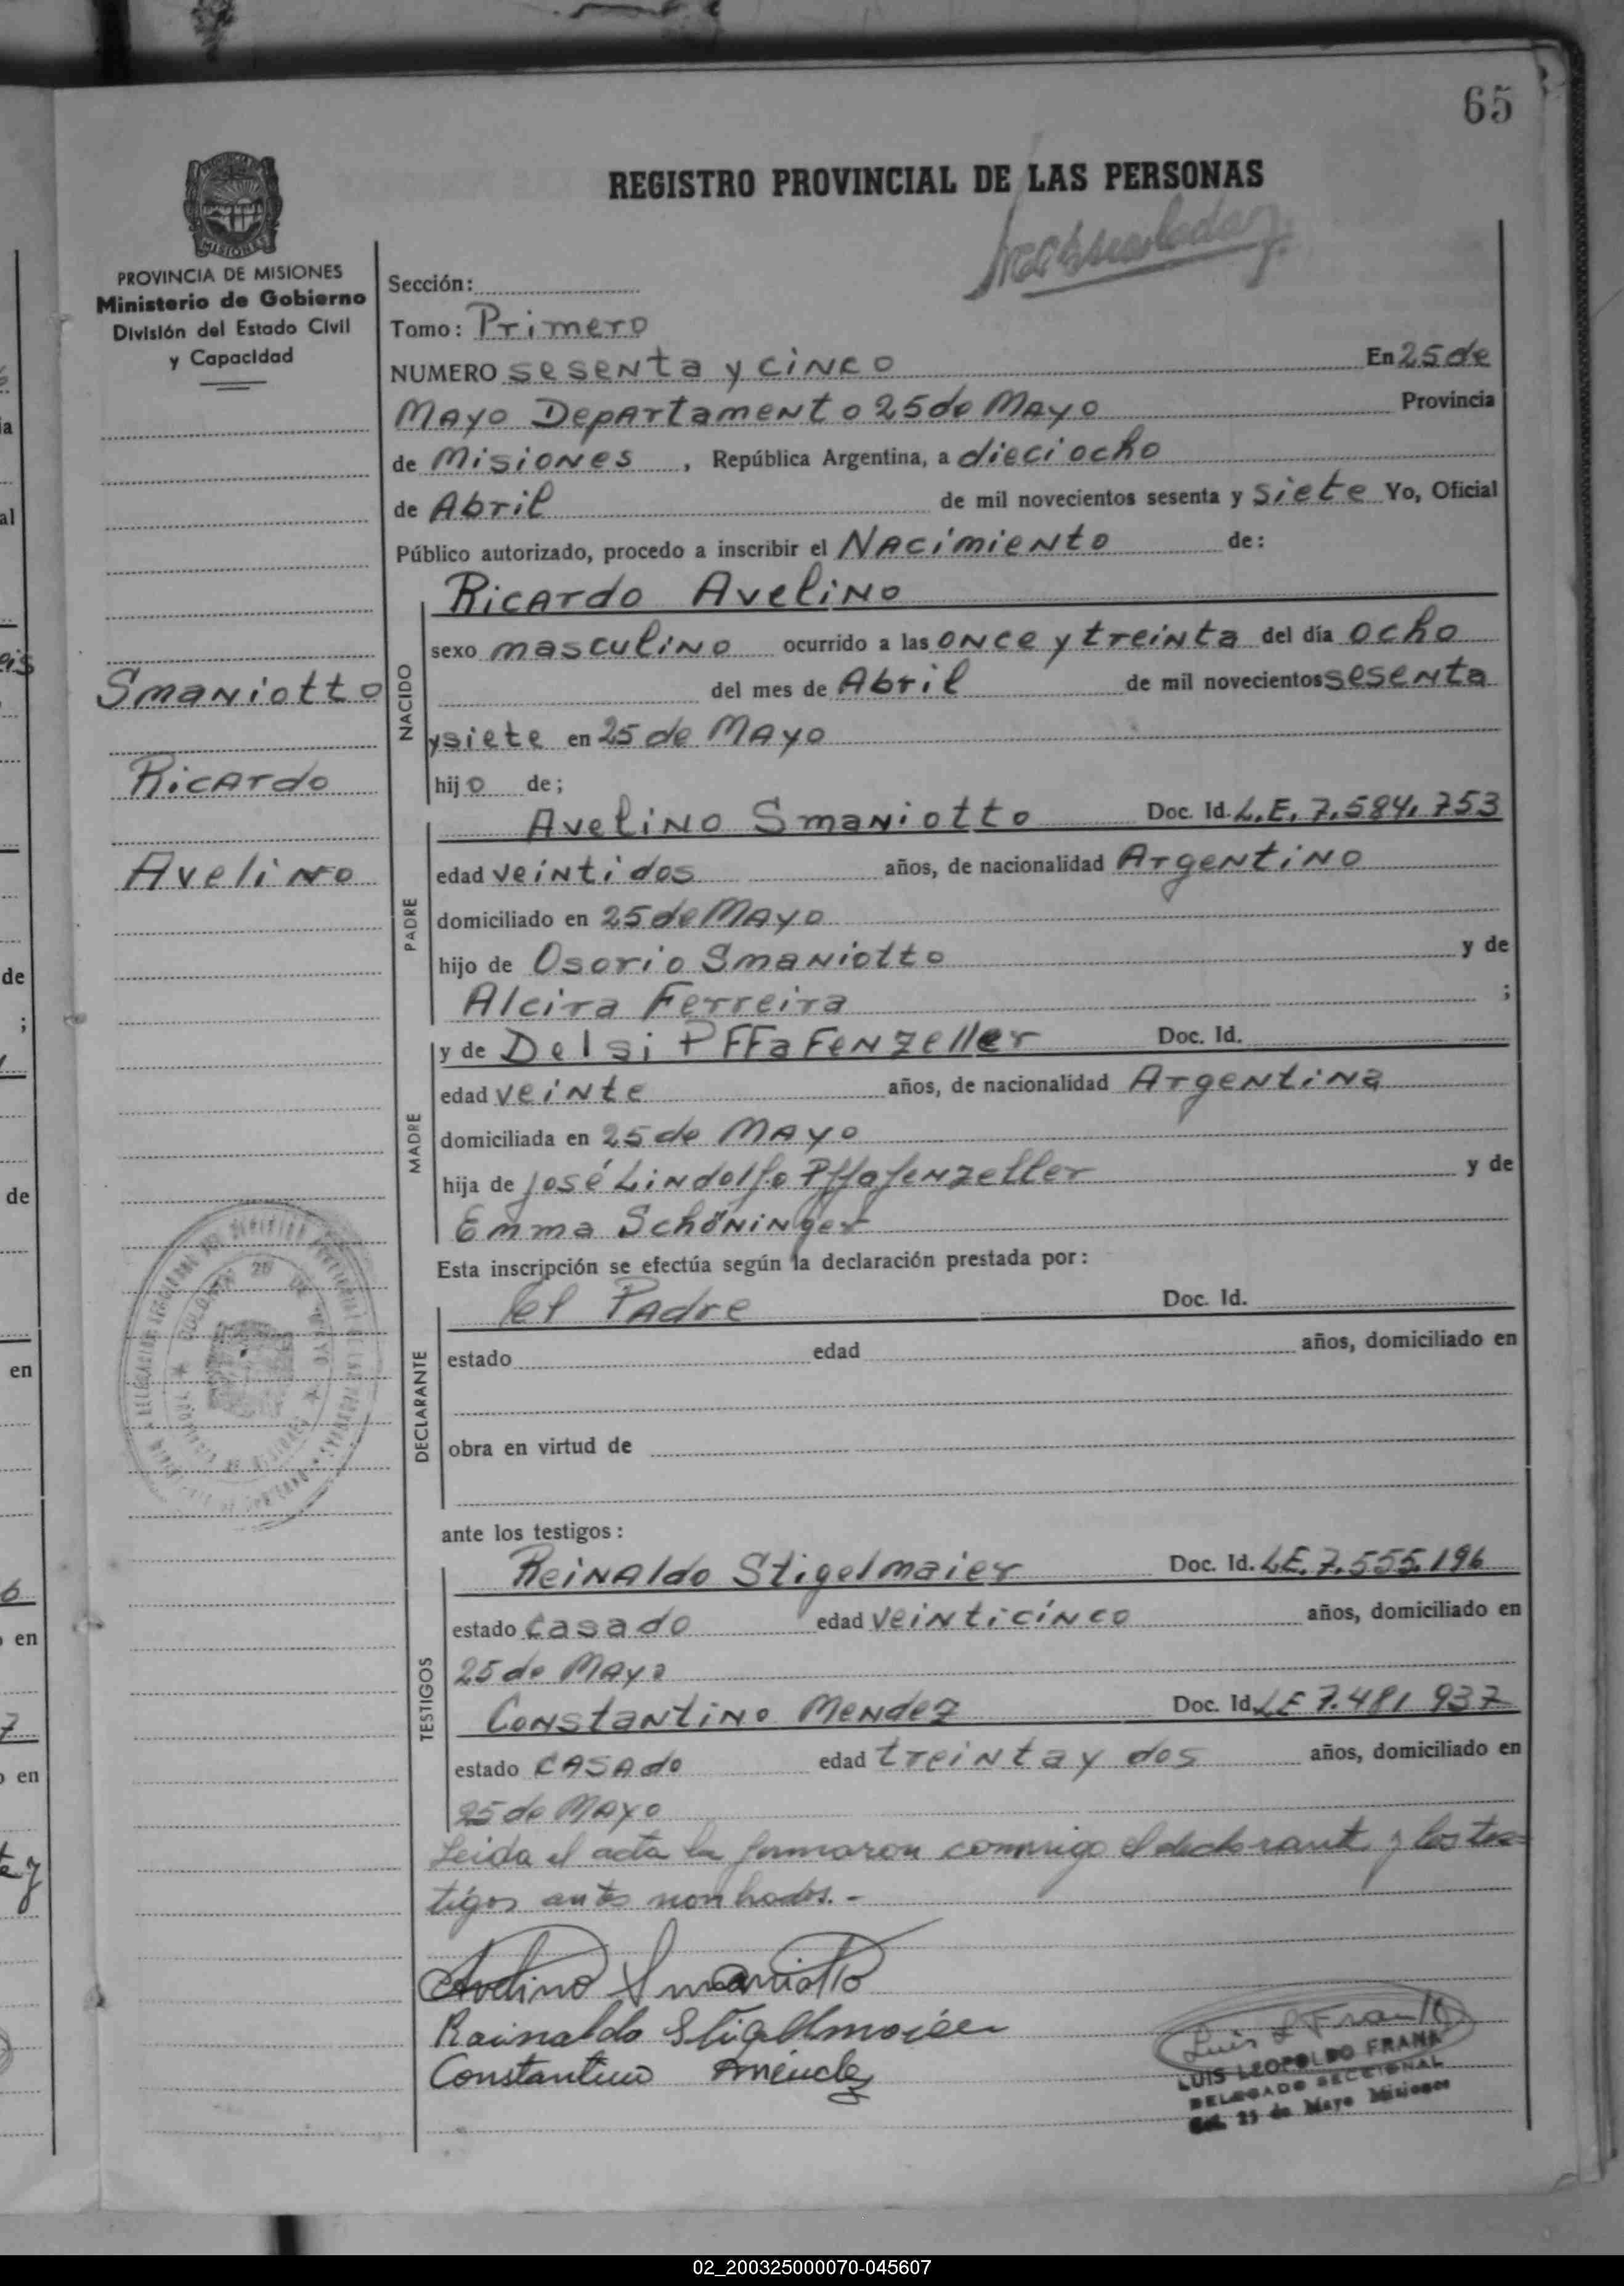 65
REGISTRO PROVINCIAL DE LAS PERSONAS
MISIONES
PROVINCIA DE MISIONES
Ministerio de Gobierno
División del Estado Civil
y Capacidad
Smaniotto
Ricardo
Avelino
Sección:
Tomo: Primero
NUMERO sesenta y cinco En 25 de
Mayo Departamento 25 de Mayo Provincia
de Misiones, República Argentina, a dieciocho
de Abril de mil novecientos sesenta y siete Yo, Oficial
Público autorizado, procedo a inscribir el Nacimiento de:
NACIDO
Ricardo Avelino
sexo masculino ocurrido a las once y treinta del día ocho
del mes de Abril de mil novecientos sesenta
y siete en 25 de Mayo
hijo de;
PADRE
Avelino Smaniotto Doc. Id. L.E. 7.584.753
edad veintidos años, de nacionalidad Argentino
domiciliado en 25 de Mayo
hijo de Osorio Smaniotto y de
Alcira Ferreira ;
MADRE
y de Delsi PFFaFenzeller Doc. Id.
edad veinte años, de nacionalidad Argentina
domiciliada en 25 de Mayo
hija de José Lindolfo Pffafenzeller y de
Emma Schöninger
Esta inscripción se efectúa según la declaración prestada por:
DECLARANTE
el Padre Doc. Id.
estado edad años, domiciliado en
obra en virtud de
ante los testigos:
TESTIGOS
Reinaldo Stigelmaier Doc. Id. L.E. 7.555.196
estado casado edad veinticinco años, domiciliado en
25 de Mayo
Constantino Mendez Doc. Id. LE 7.481 937
estado casado edad treinta y dos años, domiciliado en
25 de Mayo
Leida el acta la firmaron conmigo el declarante y los tes=
tigos antes nombrados.-
Avelino Smaniotto
Rainaldo Stigellmaier
Constantino Méndez
Luis L Frank
LUIS LEOPOLDO FRANK
DELEGADO SECCIONAL
Col. 25 de Mayo Misiones
02_200325000070-045607